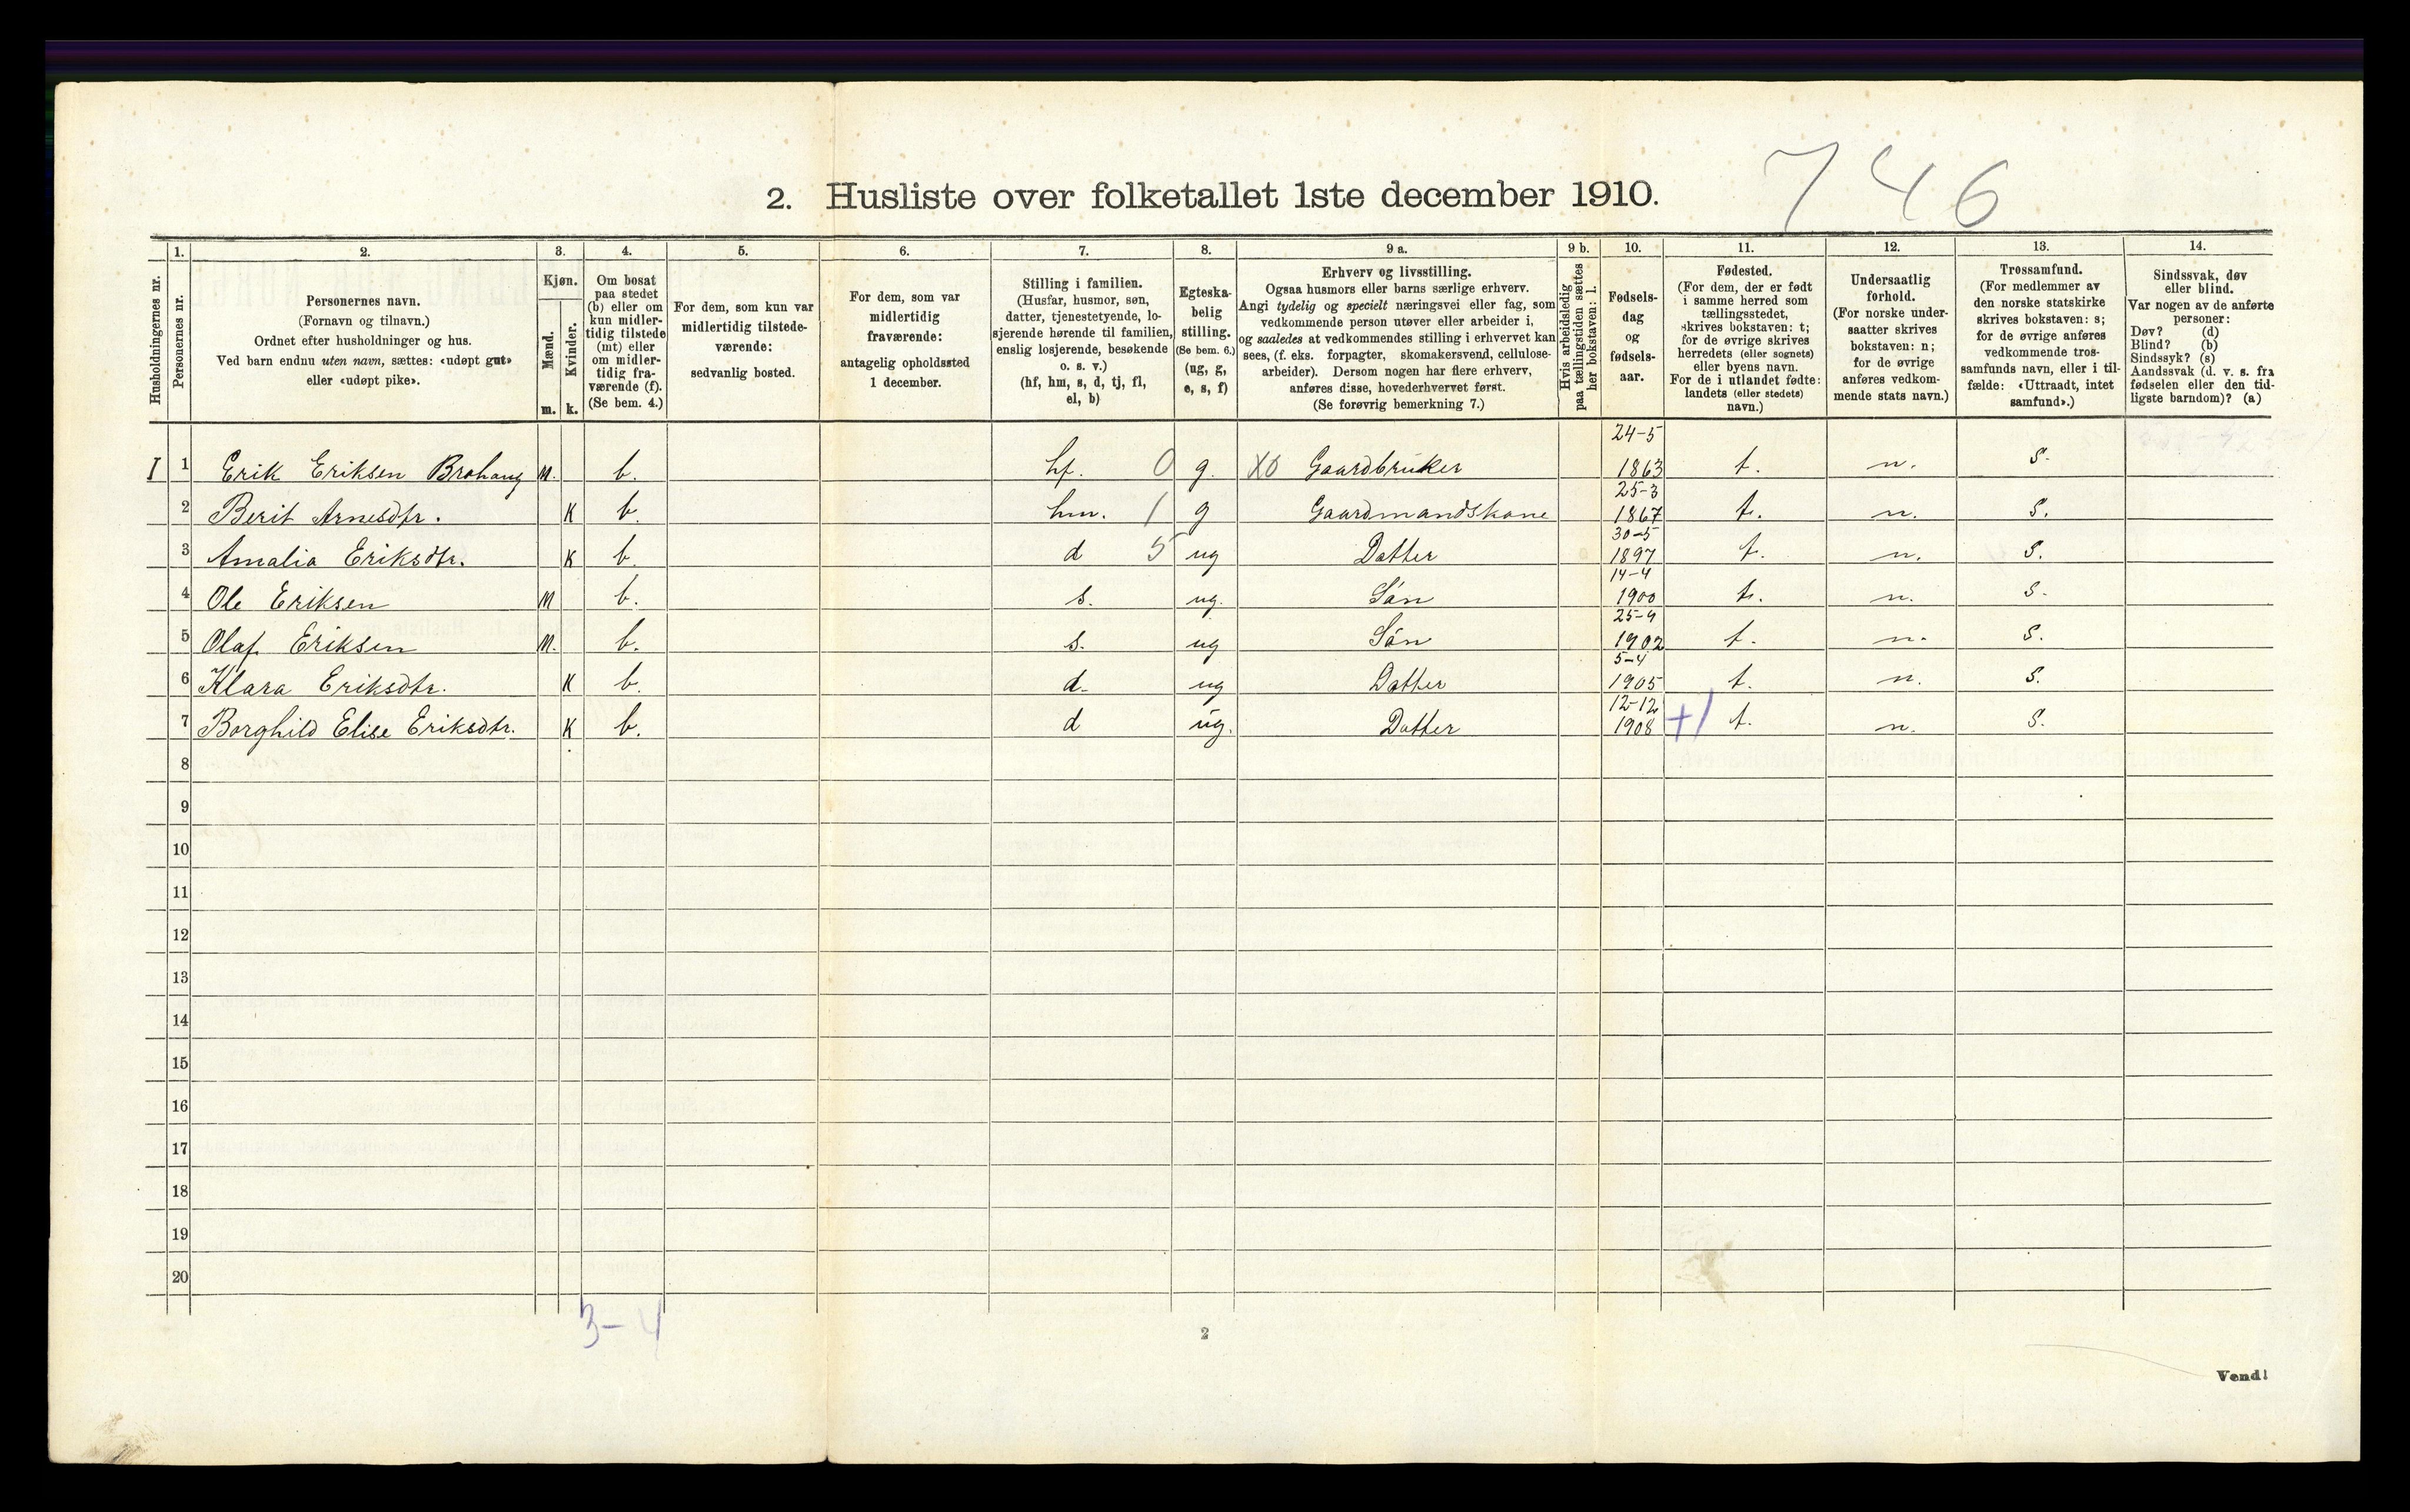 746
2. Husliste over folketallet 1ste december 1910.
Husholdningernes nr.
1.
Personernes nr.
2.
Personernes navn.
(Fornavn og tilnavn.)
Ordnet efter husholdninger og hus.
Ved barn endnu uten navn, sættes: «udøpt gut»
eller «udøpt pike».
3.
Kjøn.
Mænd.
m.
Kvinder.
k.
4.
Om bosat
paa stedet
(b) eller om
kun midler-
tidig tilstede
(mt) eller
om midler-
tidig fra-
værende (f).
(Se bem. 4.)
5.
For dem, som kun var
midlertidig tilstede-
værende:
sedvanlig bosted.
6.
For dem, som var
midlertidig
fraværende:
antagelig opholdssted
1 december.
7.
Stilling i familien.
(Husfar, husmor, søn,
datter, tjenestetyende, lo-
sjerende hørende til familien,
enslig losjerende, besøkende
o. s. v.)
(hf, hm, s, d, tj, fl,
el, b)
8.
Egteska-
belig
stilling.
(Se bem. 6.)
(ug, g,
e, s, f)
9 a.
Erhverv og livsstilling.
Ogsaa husmors eller barns særlige erhverv.
Angi tydelig og specielt næringsvei eller fag, som
vedkommende person utøver eller arbeider i,
og saaledes at vedkommendes stilling i erhvervet kan
sees, (f. eks. forpagter, skomakersvend, cellulose-
arbeider). Dersom nogen har flere erhverv,
anføres disse, hovederhvervet først.
(Se forøvrig bemerkning 7.)
9 b.
Hvis arbeidsledig
paa tællingstiden sættes
her bokstaven: l.
10.
Fødsels-
dag
og
fødsels-
aar.
11.
Fødested.
(For dem, der er født
i samme herred som
tællingsstedet,
skrives bokstaven: t;
for de øvrige skrives
herredets (eller sognets)
eller byens navn.
For de i utlandet fødte:
landets (eller stedets)
navn.)
12.
Undersaatlig
forhold.
(For norske under-
saatter skrives
bokstaven: n;
for de øvrige
anføres vedkom-
mende stats navn.)
13.
Trossamfund.
(For medlemmer av
den norske statskirke
skrives bokstaven: s;
for de øvrige anføres
vedkommende tros-
samfunds navn, eller i til-
fælde: «Uttraadt, intet
samfund».)
14.
Sindssvak, døv
eller blind.
Var nogen av de anførte
personer:
Døv? (d)
Blind? (b)
Sindssyk? (s)
Aandssvak (d. v. s. fra
fødselen eller den tid-
ligste barndom)? (a)
I 1 Erik Eriksen M. b. hf. 0 g. X0 Gaardbruker 24-5 1863 t. n. s.
2 Berit Arnesdtr. K b. hm. 1 g Gaardmandskone 25-3 1867 t. n. s.
3 Amalia Eriksdtr. K b. d 5 ug Datter 30-5 1897 t. n. s.
4 Ole Eriksen M b. s. ug. Søn 14-4 1900 t. n. s.
5 Olaf Eriksen M. b. s. ug Søn 25-9 1902 t. n. s.
6 Klara Eriksdtr. K b. d. ug Datter 5-4 1905 t. n. s.
7 Borghild Elise Eriksdtr. K b. d ug. Datter 12-12 1908 +1 t. n. s.
8
9
10
11
12
13
14
15
16
17
18
19
20
3-4
2
Vend!